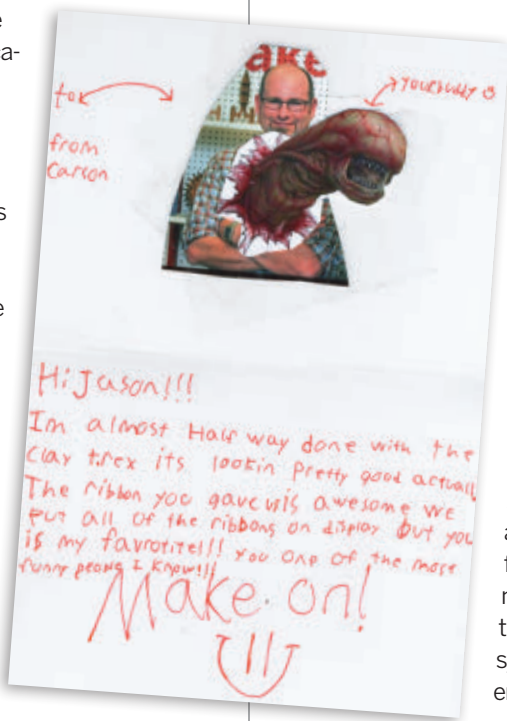 ake
for
from
Carson
Your buddy
Hi Jason!!!
Im almost Half way done with the
Clay t.rex its lookin Pretty good actuall
The ribbon you gave us is awesome we
Put all of the ribbons on display but you
is my favrotite!!! you one of the most
funny people I know!!!
Make on!